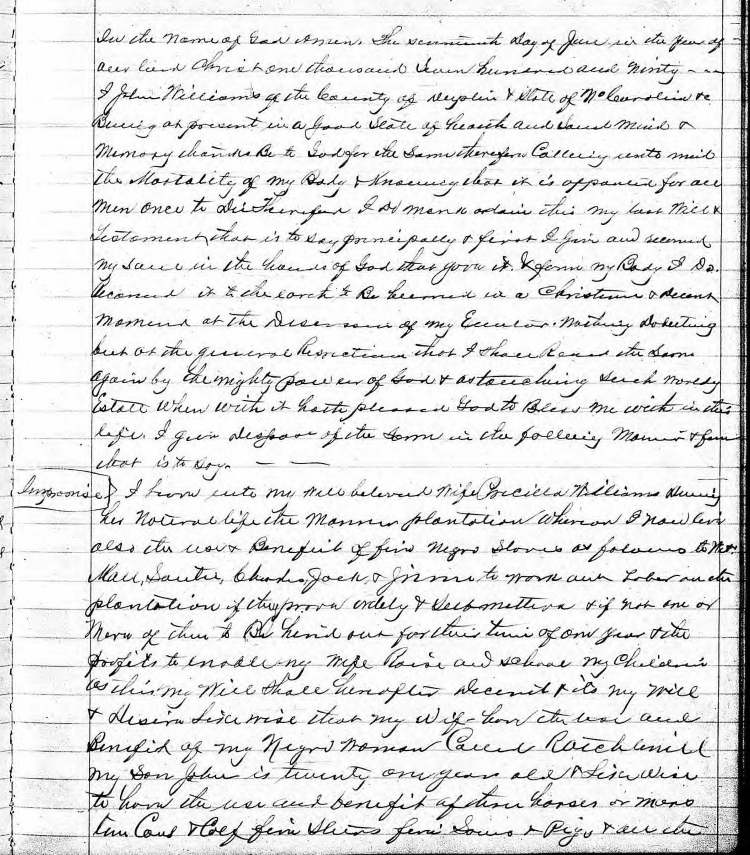 In the Name of God Amen. The seventeenth Day of June in the Year of
our lord Christ one thousand Seven hundred and Ninty
I John Williams of the County of Duplin & State of No Carolina &c
Being at present in a Good State of health and Sound Mind &
Memory thanks Be to God for the Same therefore Calling unto mind
the Mortality of my Body & Knowing that it is appointed for all
Men once to Die Therefore I Do Make ordain this my last Will &
Testament, that is to Say principally & first I Give and
my Soul in the hands of God that gave it. & for my Body I Do.
it to the earth to Be in a Christian & Decent
at the of my Nothing Doubting
but at the general that I Shall the Same
again by the mighty power of God & as touching Such Worldly
Estate When with it hath pleased God to Bless me with in this
life. I give Dispose of the Same in the Manner & form
that is to Say.
I unto my Well beloved Wife Pricilla Williams During
her Natural life the Manner plantation Whereon I Now live
also the use & Benefit of five Negro Slaves as follows to Wit
Charles, Jack, & to Work and Labor on the
plantation if they prove & & if not one or
More of them to Be hired out for their time of one Year & the
profits to my Wife Raise and School my Children
as this my Will Shall hereafter & its my Will
& Desire Like wise that my Wife have the use and
Benefid of my Negro Woman Called
my Son John is twenty one years old & Like Wise
to have the use and benefit of three horses or
ten Cows & Calf five five Sows & Pigs & all the